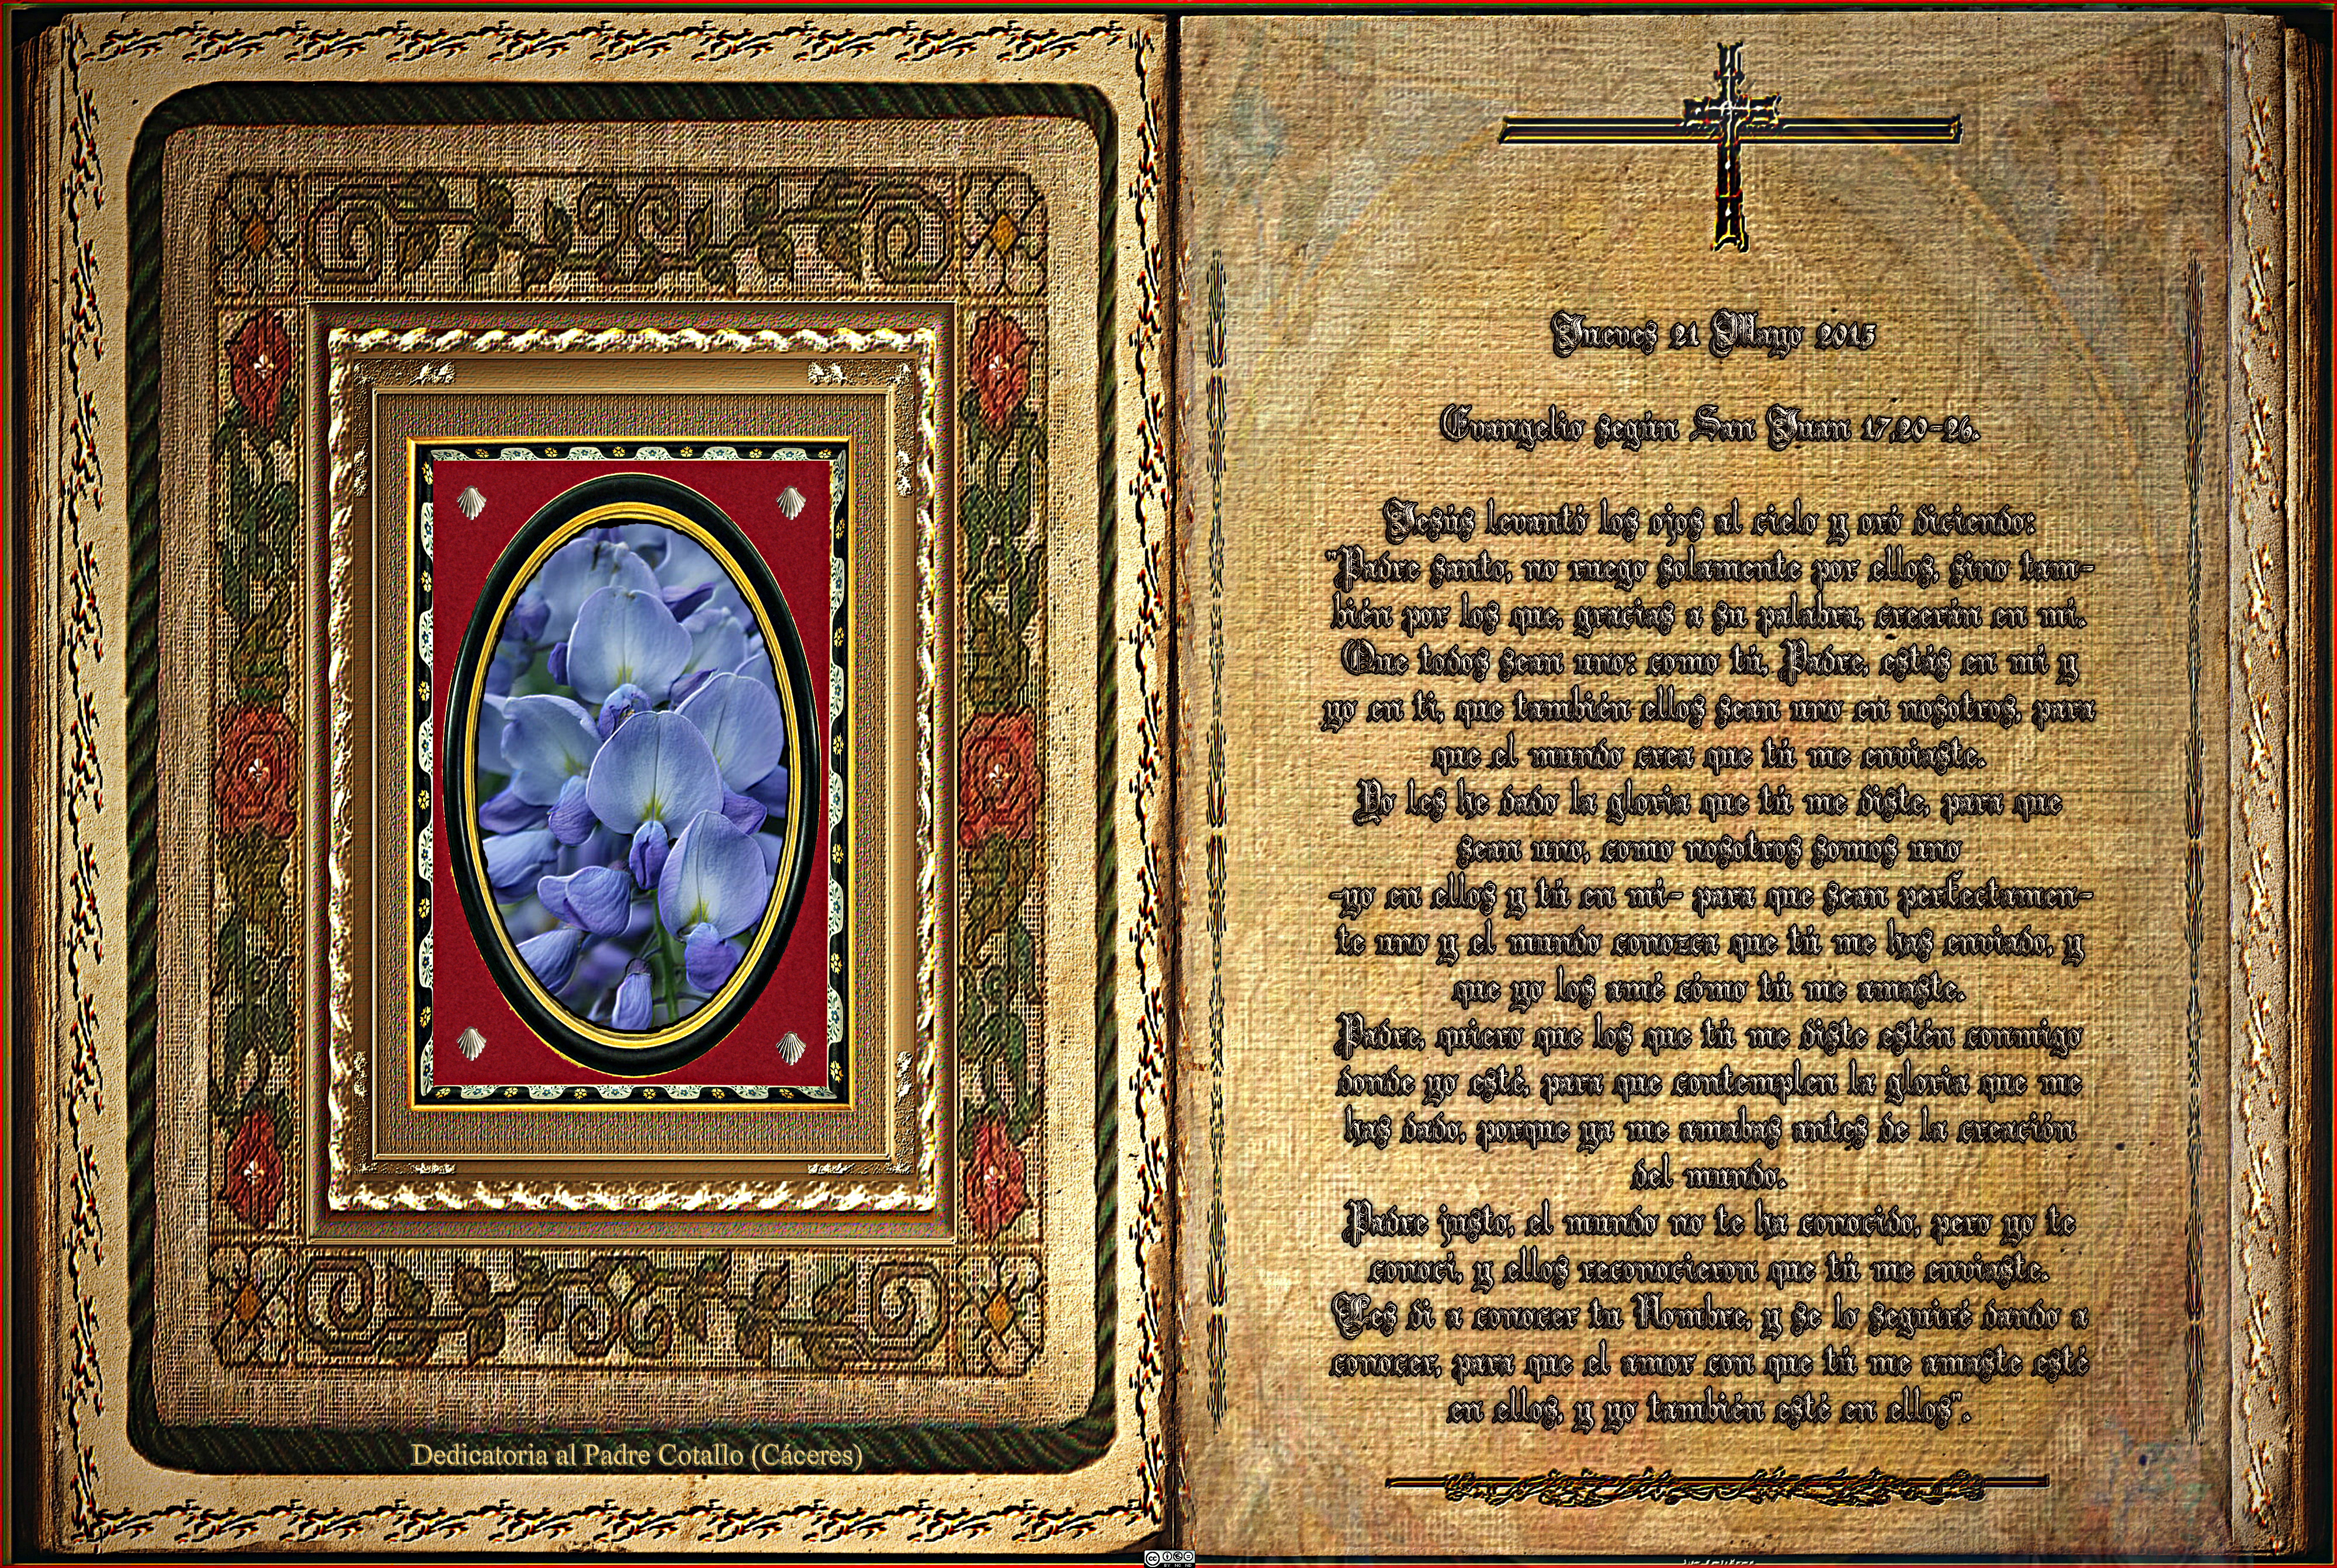 Dedicatoria al Padre Cotallo (Cáceres)
Jueves 21 Mayo 2015
Evangelio según San Juan 17,20-26.
Jesús levantó los ojos al cielo y oró diciendo:
"Padre santo, no ruego solamente por ellos, sino tam-
bién por los que, gracias a su palabra, creerán en mí.
Que todos sean uno: como tú, Padre, estás en mí y
yo en ti, que también ellos sean uno en nosotros, para
que el mundo crea que tú me enviaste.
Yo les he dado la gloria que tú me diste, para que
sean uno, como nosotros somos uno
-yo en ellos y tú en mí- para que sean perfectamen-
te uno y el mundo conozca que tú me has enviado, y
que yo los amé cómo tú me amaste.
Padre, quiero que los que tú me diste estén conmigo
donde yo esté, para que contemplen la gloria que me
has dado, porque ya me amabas antes de la creación
del mundo.
Padre justo, el mundo no te ha conocido, pero yo te
conocí, y ellos reconocieron que tú me enviaste.
Les di a conocer tu Nombre, y se lo seguiré dando a
conocer, para que el amor con que tú me amaste esté
en ellos, y yo también esté en ellos".
cc
BY NC ND